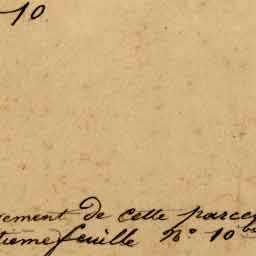 10.
ement de cette parce
tieme feuille N.° 10 bis